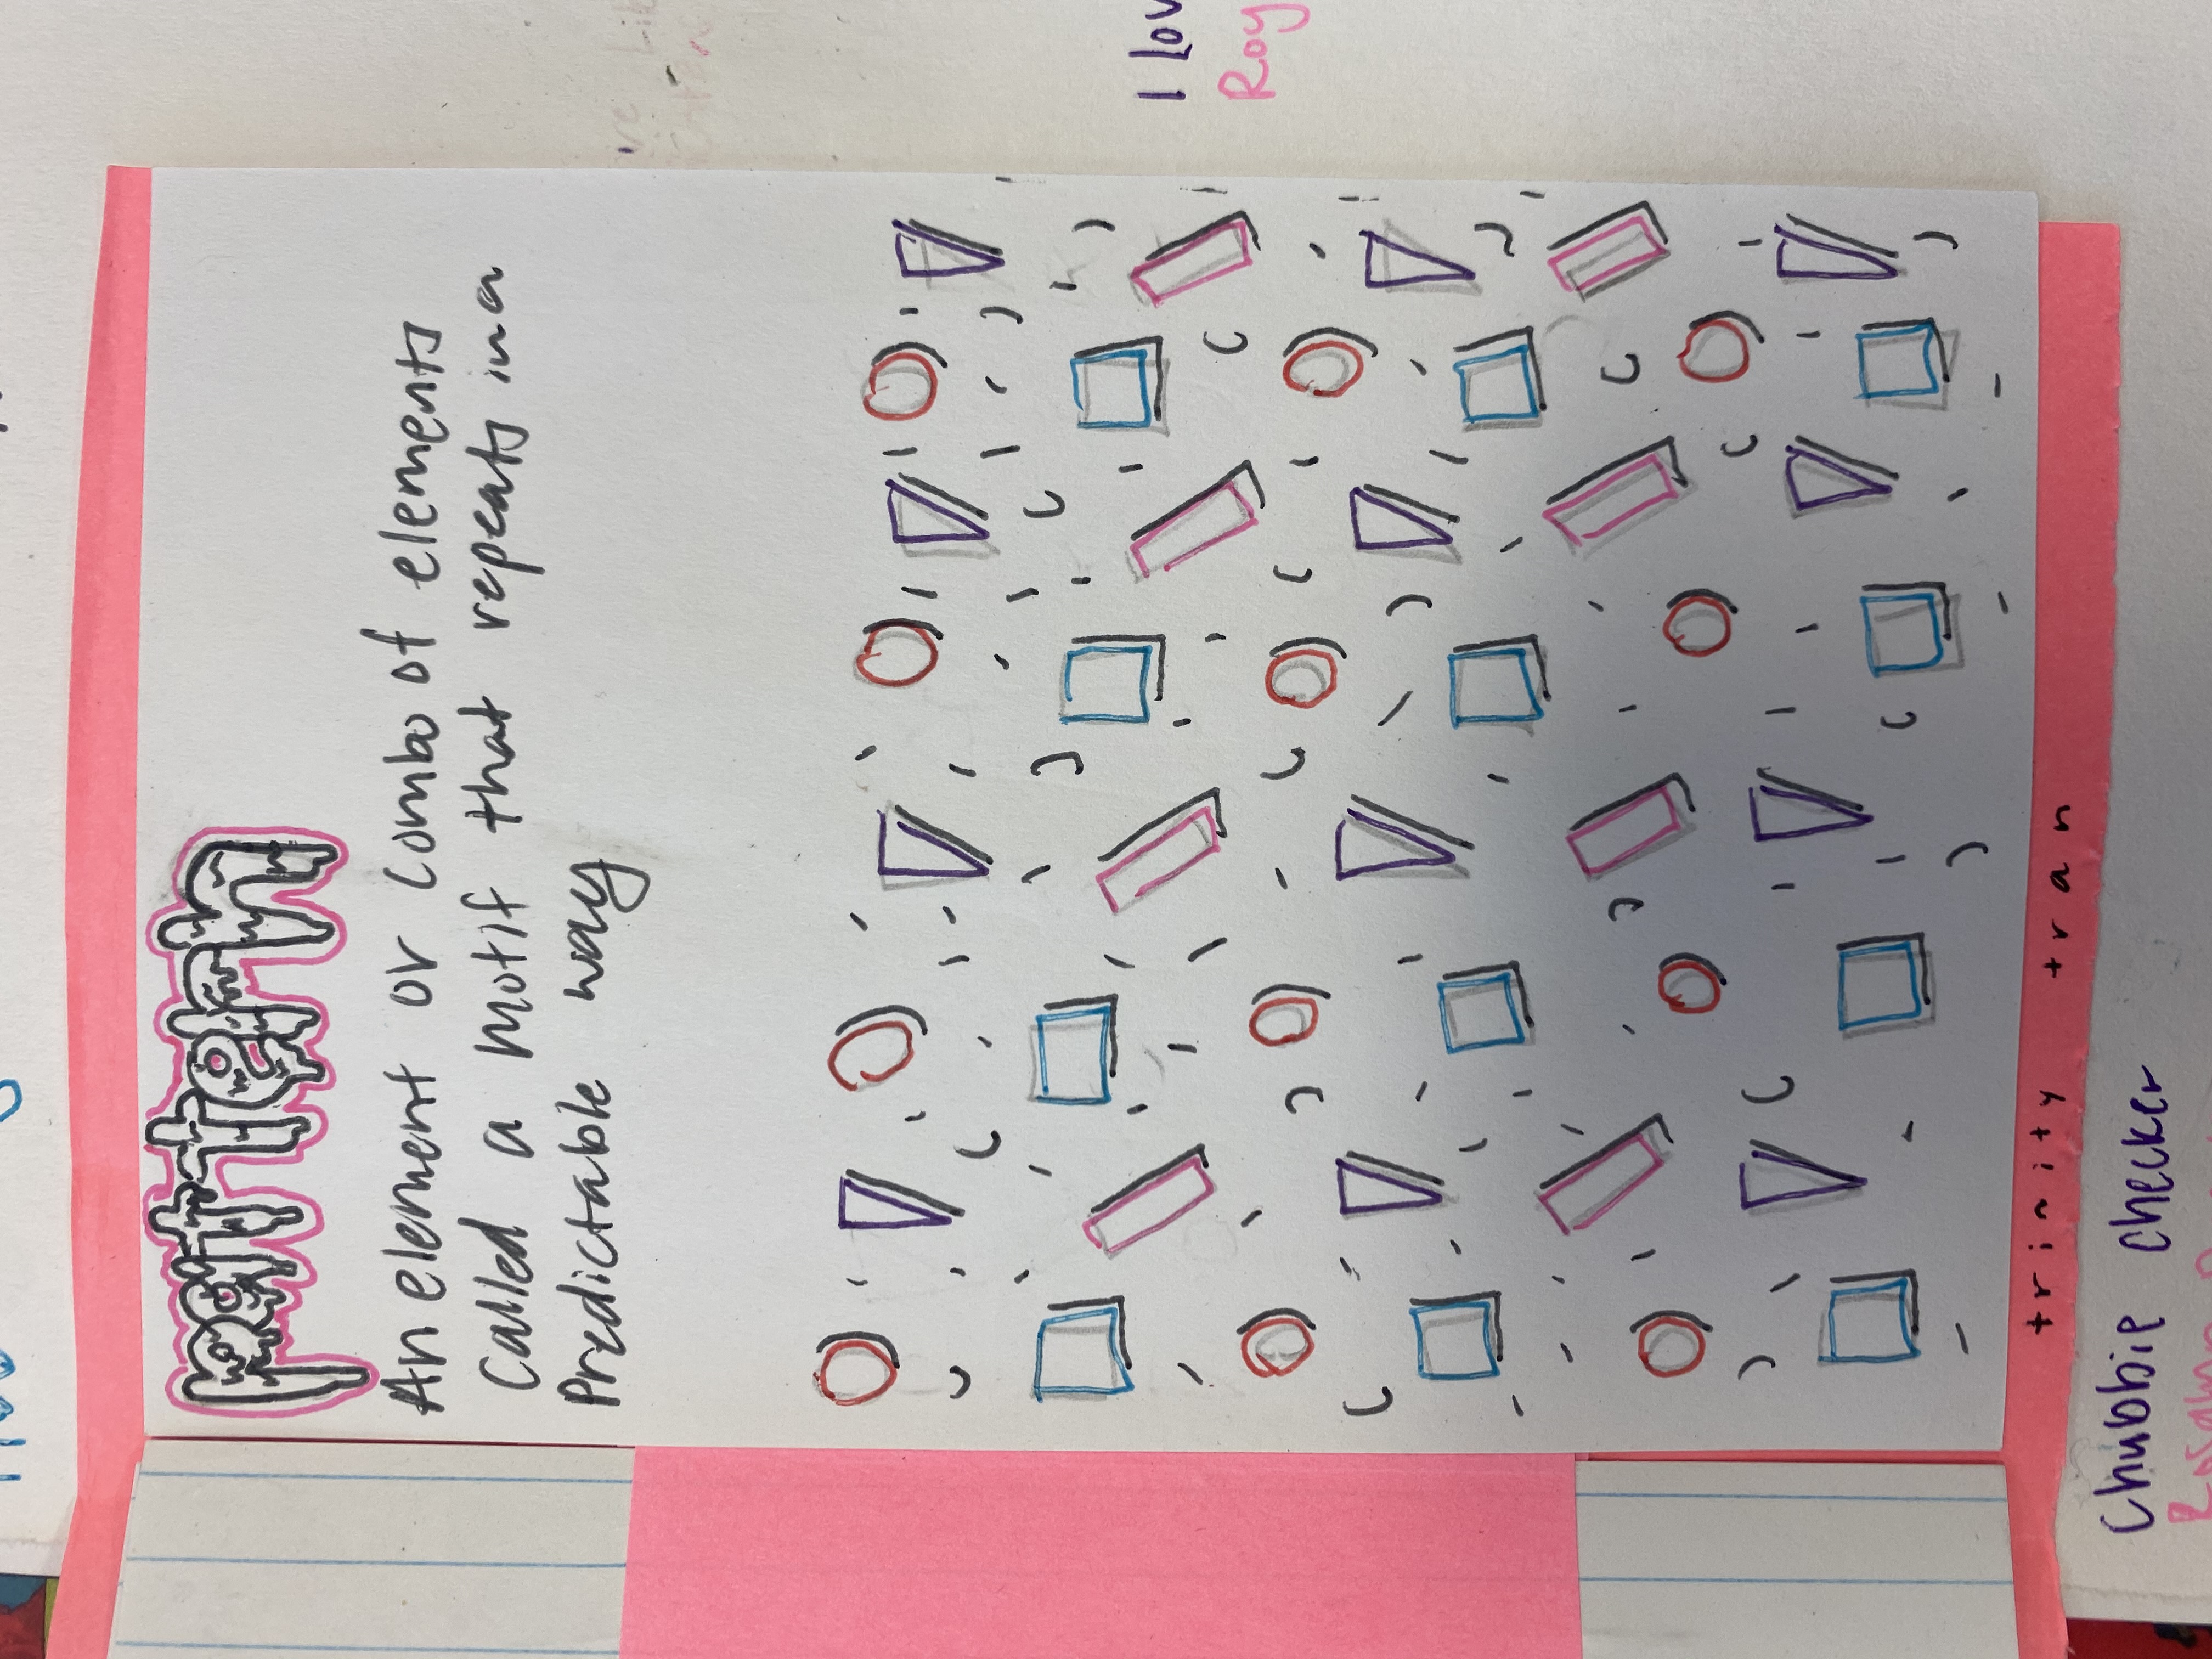 pattern
An element or combo of elements
called a motif that repeats in a
Predictable way
I lov
Roy
trinity tran
Chubbie checker